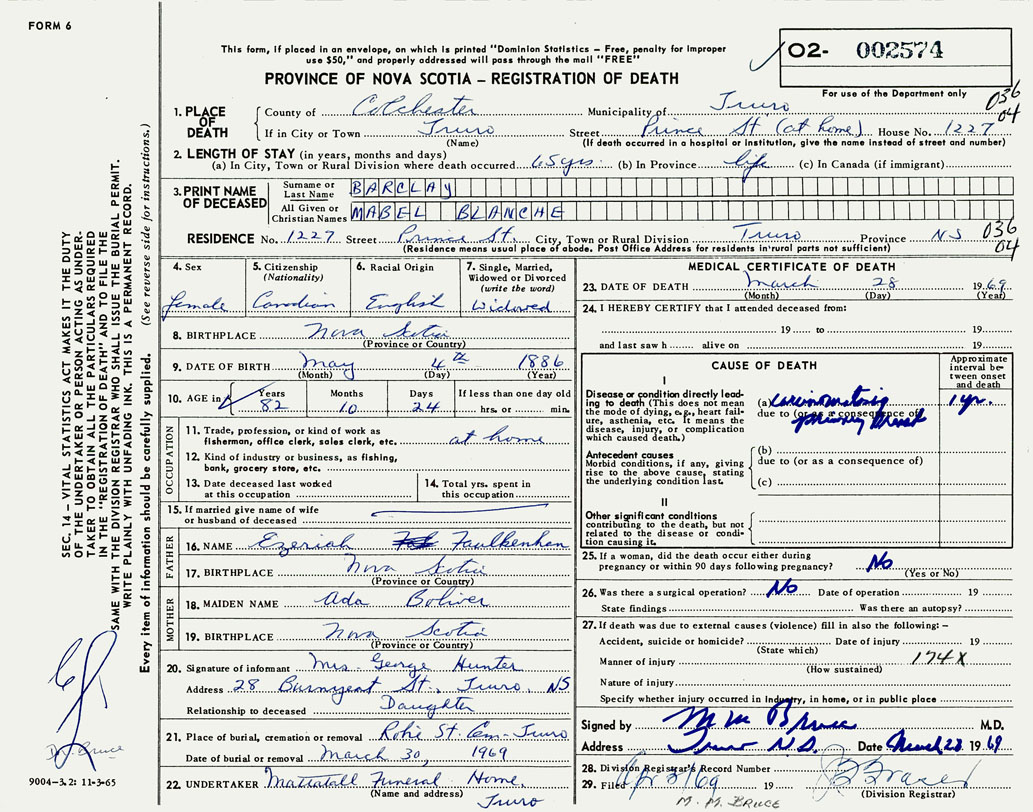 FORM 6
This form, if placed in an envelope, on which is printed "Dominion Statistics – Free, penalty for improper
use $50," and properly addressed will pass through the mail "FREE"
PROVINCE OF NOVA SCOTIA – REGISTRATION OF DEATH
02- 002574
For use of the Department only
036
04
1. PLACE OF DEATH
County of Colchester Municipality of Truro
If in City or Town Truro Street Prince St (at home) House No. 1227
(Name) (If death occurred in a hospital or institution, give the name instead of street and number)
2. LENGTH OF STAY (in years, months and days)
(a) In City, Town or Rural Division where death occurred 65 yrs (b) In Province life (c) In Canada (if immigrant)
3. PRINT NAME OF DECEASED
Surname or Last Name BARCLAY
All Given or Christian Names MABEL BLANCHE
RESIDENCE No. 1227 Street Prince St. City, Town or Rural Division Truro Province NS
036
04
(Residence means usual place of abode. Post Office Address for residents in rural parts not sufficient)
4. Sex female
5. Citizenship (Nationality) Canadian
6. Racial Origin English
7. Single, Married, Widowed or Divorced (write the word) Widowed
8. BIRTHPLACE Nova Scotia
(Province or Country)
9. DATE OF BIRTH May 4th 1886
(Month) (Day) (Year)
10. AGE in Years 82 Months 10 Days 24 If less than one day old hrs. or min.
OCCUPATION
11. Trade, profession, or kind of work as
fisherman, office clerk, sales clerk, etc. at home
12. Kind of industry or business, as fishing,
bank, grocery store, etc.
13. Date deceased last worked
at this occupation
14. Total yrs. spent in
this occupation
15. If married give name of wife
or husband of deceased
FATHER
16. NAME Ezeriah Faulkenham
17. BIRTHPLACE Nova Scotia
(Province or Country)
MOTHER
18. MAIDEN NAME Ada Boliver
19. BIRTHPLACE Nova Scotia
(Province or Country)
20. Signature of informant Mrs. George Hunter
Address 28 Burnyeat St., Truro, NS
Relationship to deceased Daughter
21. Place of burial, cremation or removal Robie St. Cem- Truro
Date of burial or removal March 30, 1969
22. UNDERTAKER Mattatall Funeral Home,
(Name and address) Truro
MEDICAL CERTIFICATE OF DEATH
23. DATE OF DEATH March 28 1969
(Month) (Day) (Year)
24. I HEREBY CERTIFY that I attended deceased from:
19 to 19
and last saw h alive on 19
CAUSE OF DEATH
Approximate interval between onset and death
I
Disease or condition directly leading to death (This does not mean the mode of dying, e.g., heart failure, asthenia, etc. It means the disease, injury, or complication which caused death.)
(a) carcinomatosis 1 yr.
due to (or as a consequence of)
primary breast
Antecedent causes
Morbid conditions, if any, giving rise to the above cause, stating the underlying condition last.
(b)
due to (or as a consequence of)
(c)
II
Other significant conditions
contributing to the death, but not related to the disease or condition causing it.
25. If a woman, did the death occur either during
pregnancy or within 90 days following pregnancy? No
(Yes or No)
26. Was there a surgical operation? No Date of operation 19
State findings Was there an autopsy?
27. If death was due to external causes (violence) fill in also the following: –
Accident, suicide or homicide? Date of injury 19
(State which)
Manner of injury 174X
(How sustained)
Nature of injury
Specify whether injury occurred in Industry, in home, or in public place
Signed by M M Bruce M.D.
Address Truro N.S. Date March 28 1969
28. Division Registrar's Record Number
29. Filed Apr 3/69 19
(Division Registrar)
M. M. BRUCE
SEC. 14 – VITAL STATISTICS ACT MAKES IT THE DUTY
OF THE UNDERTAKER OR PERSON ACTING AS UNDER-
TAKER TO OBTAIN ALL THE PARTICULARS REQUIRED
IN THE "REGISTRATION OF DEATH" AND TO FILE THE
SAME WITH THE DIVISION REGISTRAR WHO SHALL ISSUE THE BURIAL PERMIT.
WRITE PLAINLY WITH UNFADING INK. THIS IS A PERMANENT RECORD.
Every item of information should be carefully supplied. (See reverse side for instructions.)
Dr. Bruce
9004–3.2: 11-3-65